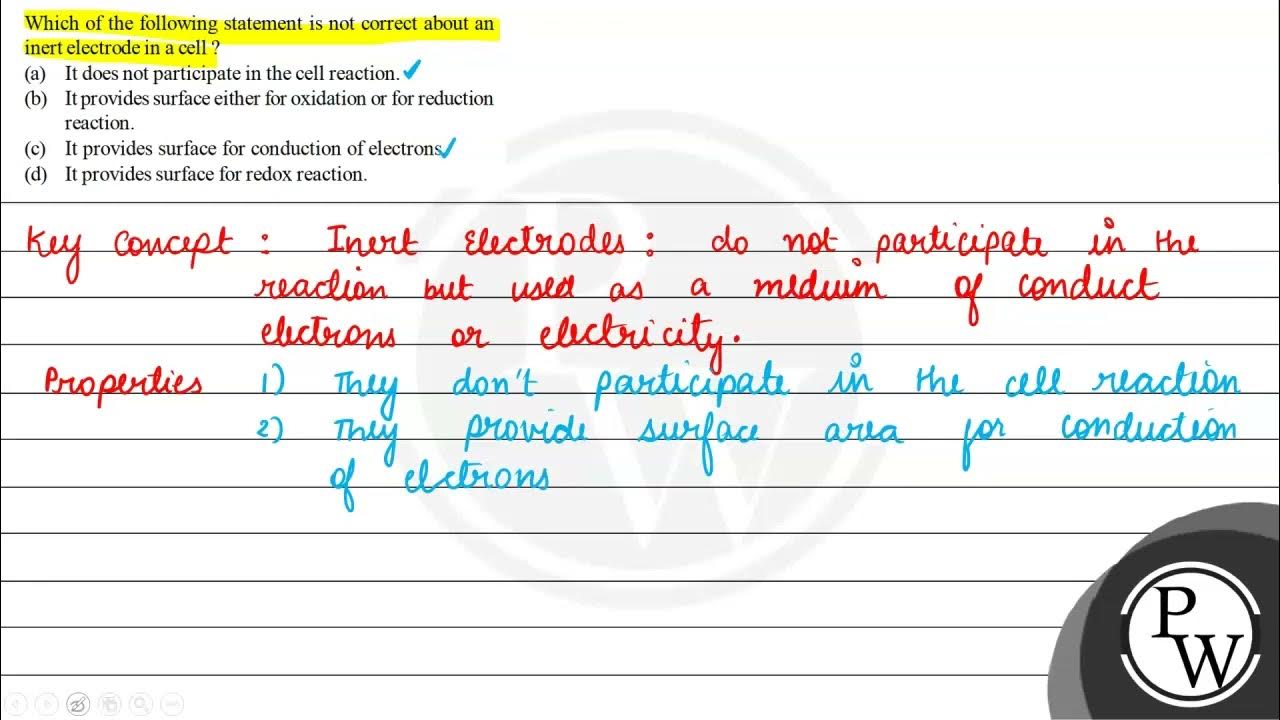 Which of the following statement is not correct about an
inert electrode in a cell ?
(a) It does not participate in the cell reaction. ✓
(b) It provides surface either for oxidation or for reduction
reaction.
(c) It provides surface for conduction of electrons ✓
(d) It provides surface for redox reaction.
Key Concept : Inert Electrodes : do not participate in the
reaction but used as a medium of conduct
electrons or electricity.
Properties 1) They don't participate in the cell reaction
2) They provide surface area for conduction
of elctrons
P
W
PW